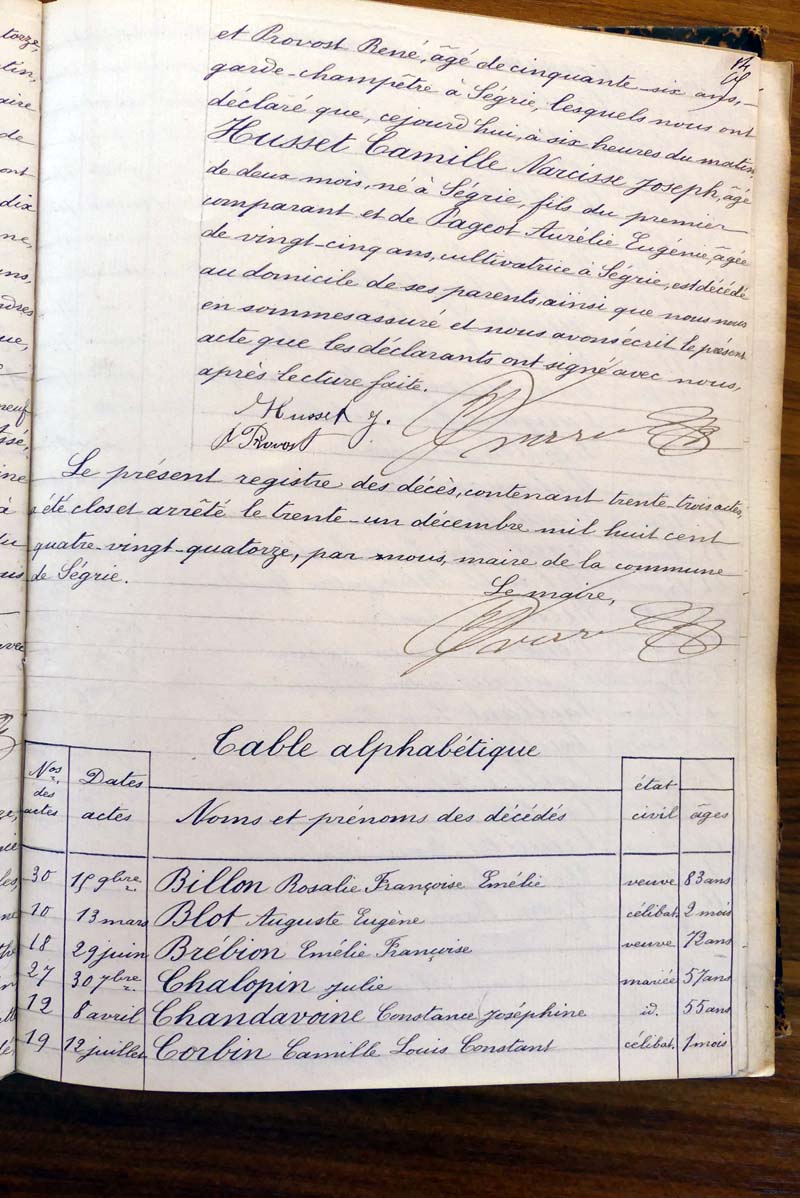 et Provost René, âgé de cinquante-six ans,
garde-champêtre à Ségrie, lesquels nous ont
déclaré que, cejourd'hui, à six heures du matin
Husset Camille Narcisse Joseph, âgé
de deux mois, né à Ségrie, fils du premier
comparant et de Pageot Aurélie Eugénie, âgée
de vingt-cinq ans, cultivatrice à Ségrie, est décédé
au domicile de ses parents, ainsi que nous nous
en sommes assuré et nous avons écrit le présent
acte que les déclarants ont signé avec nous,
après lecture faite.
Husset J.
Provost
Le présent registre des décès, contenant trente-trois actes,
a été clos et arrêté le trente-un décembre mil huit cent
quatre-vingt-quatorze, par nous, maire de la commune
de Ségrie.
Le maire,
Table alphabétique
Nos des actes Dates actes Noms et prénoms des décédés état civil âges
30 15 9bre Billon Rosalie Françoise Emélie veuve 83 ans
10 13 mars Blot Auguste Eugène célibat. 2 mois
18 29 juin Brébion Emélie Françoise veuve 72 ans
27 30 7bre Chalopin Julie mariée 57 ans
12 8 avril Chandavoine Constance Joséphine id. 55 ans
19 12 juillet Corbin Camille Louis Constant célibat. 1 mois